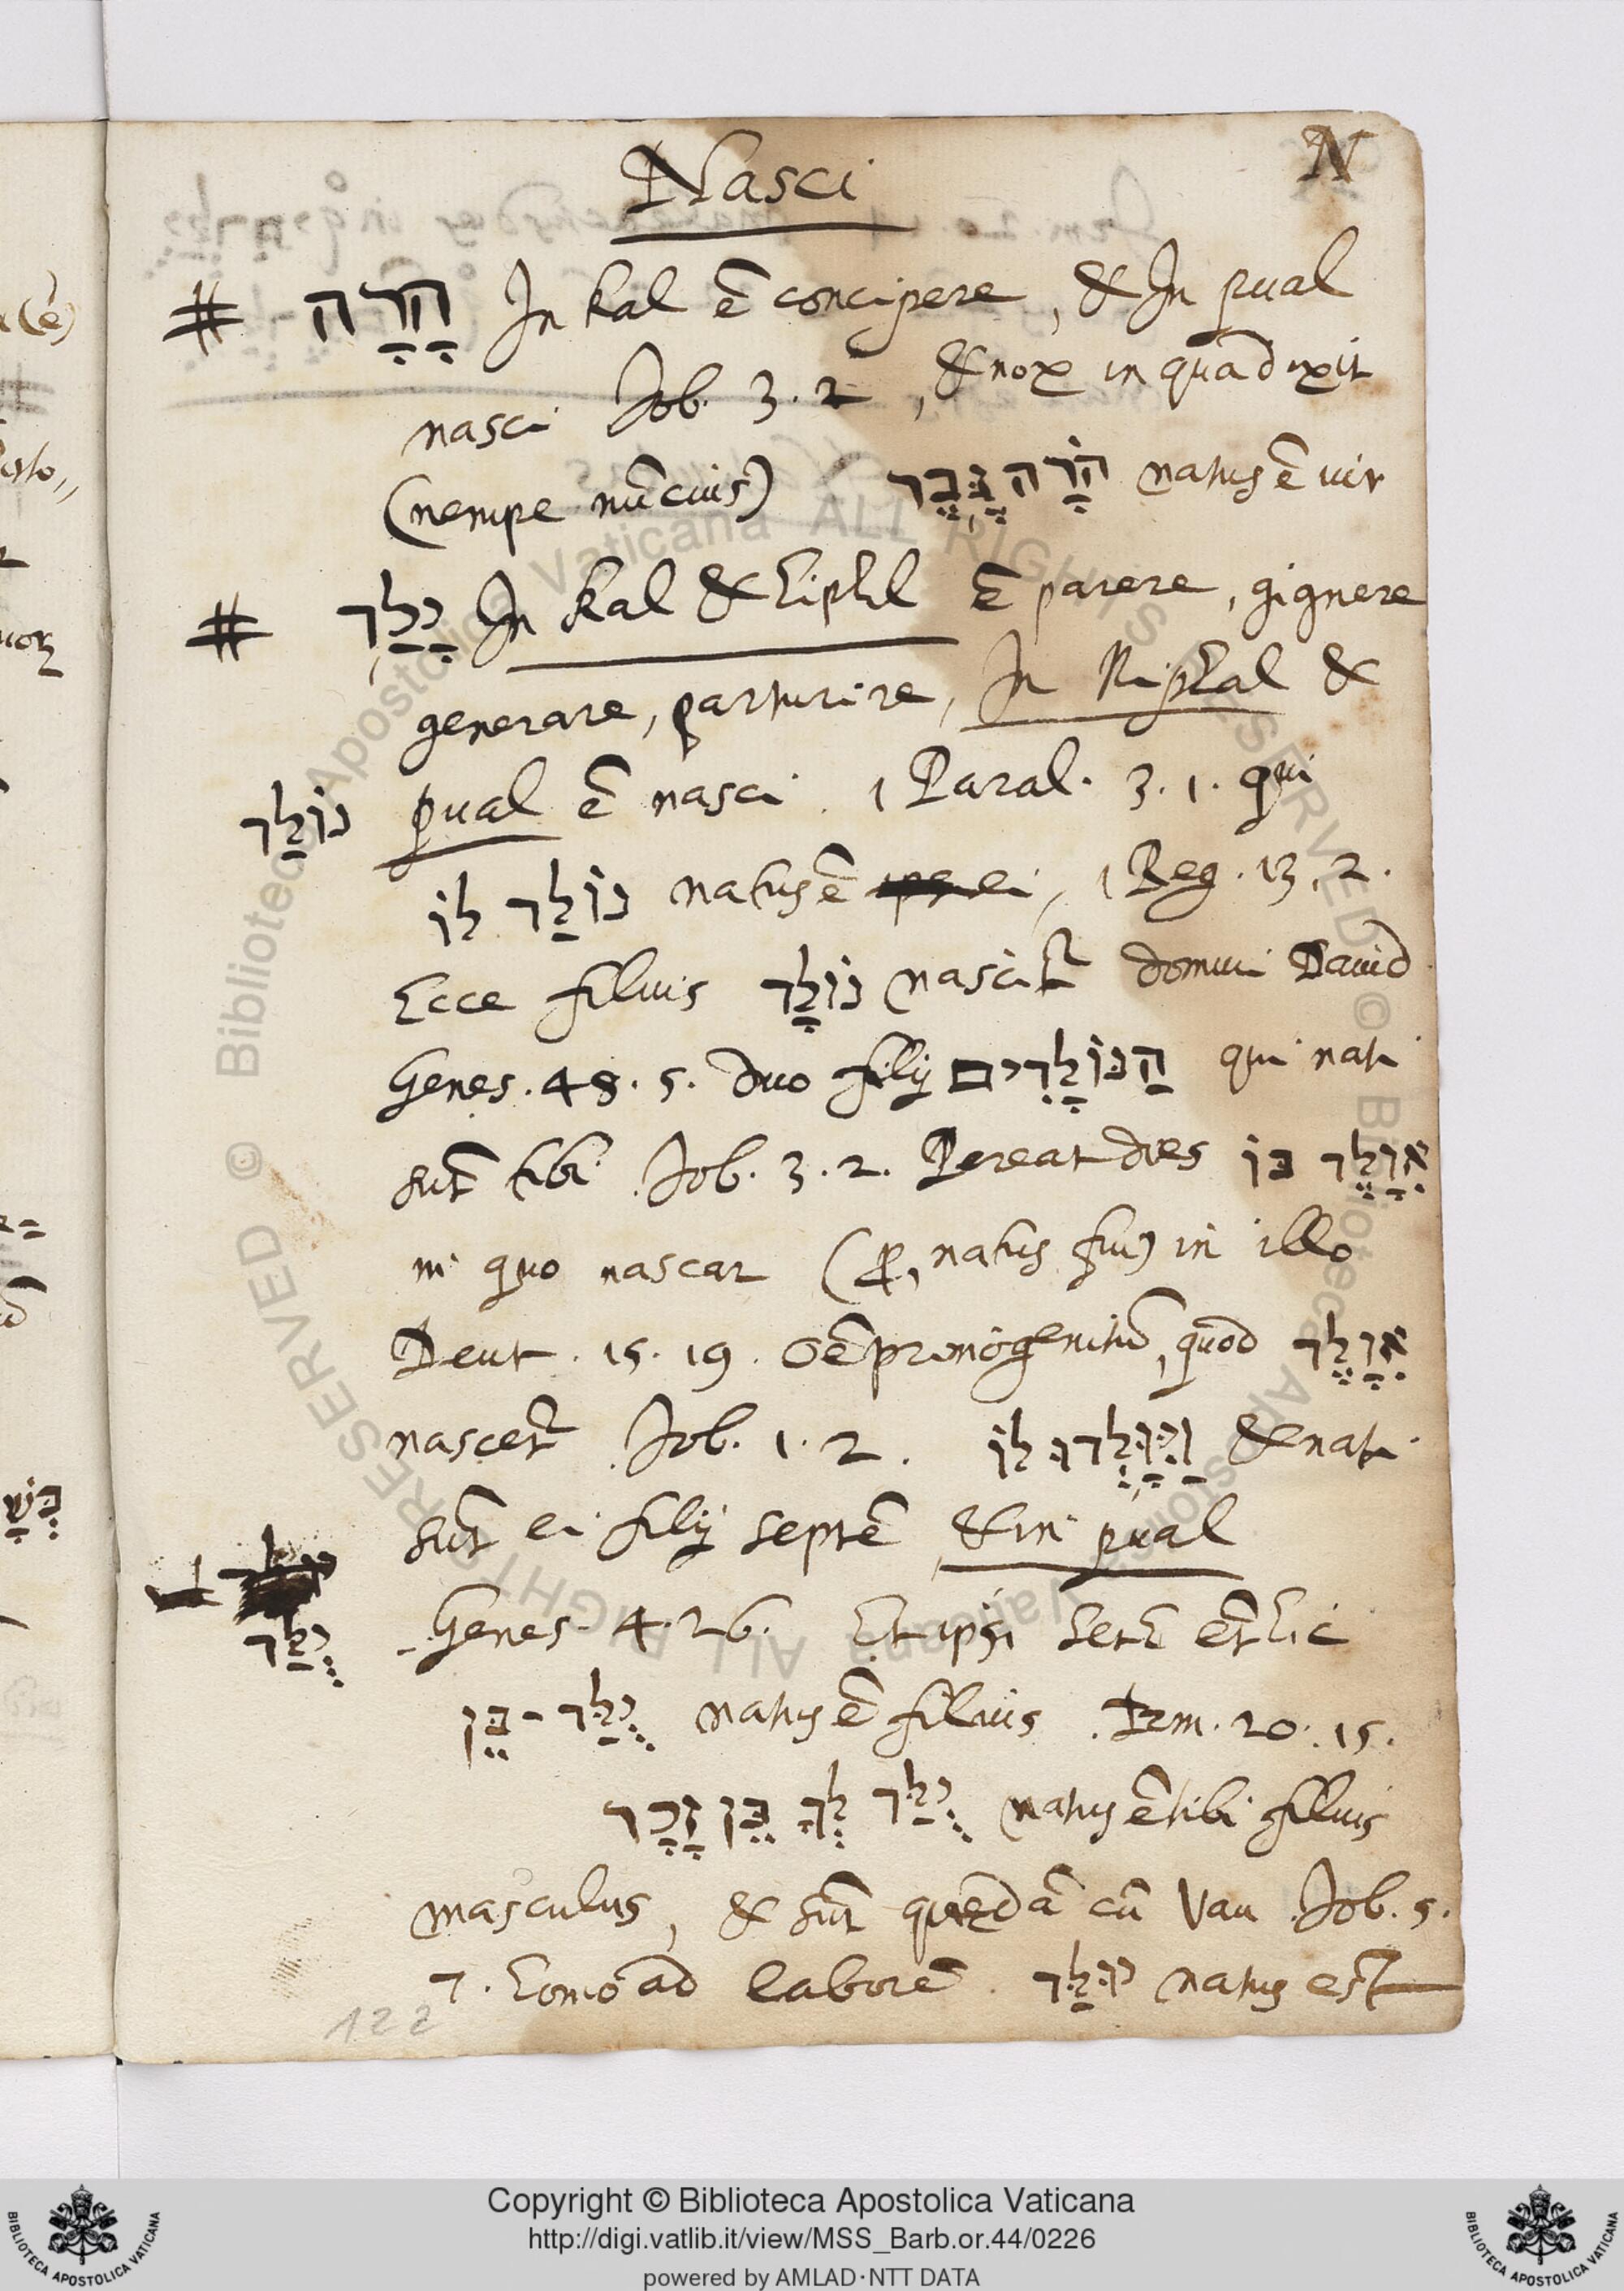 N
Nasci
# הָרָה In kal ē concipere, & In pual
nasci Job. 3. 2, & nox in qua dixit
(nempe nūcius) הֹרָה גָּבֶר natus ē uir
# יָלַד In kal & hiphil ē parere, gignere
generare, parturire, In Niphal &
נוֹלַד pual ē nasci. 1 Paral. 3. 1. qui
נוֹלַד לוֹ natus ē ei, 1 Reg. 13. 2.
Ecce filius נוֹלָד nascit̃ domui Dauid
Genes. 48. 5. duo filij הַנּוֹלָדִים qui nati
sūt tibi Job. 3. 2. Pereat dies אִוָּלֶד בּוֹ
in quo nascar (ꝓ, natus fui) in illo
Deut. 15. 19. Oē primogenitū, quod אִוָּלֶד
nascet̃ Job. 1. 2. וַיִּוָּלְדוּ לוֹ & nati
sūt ei filij septē & in pual
יֻלַּד Genes. 4. 26. Et ipsi Seth et̃ hic
יֻלַּד־בֵּן natus ē filius. Irm. 20. 15.
יֻלַּד לְךָ בֵּן זָכָר natus ē tibi filius
masculus, & sūt quędā cū Vau Job. 5.
7. homo ad laborē יוּלַּד natus est
122
Copyright © Biblioteca Apostolica Vaticana
http://digi.vatlib.it/view/MSS_Barb.or.44/0226
powered by AMLAD·NTT DATA